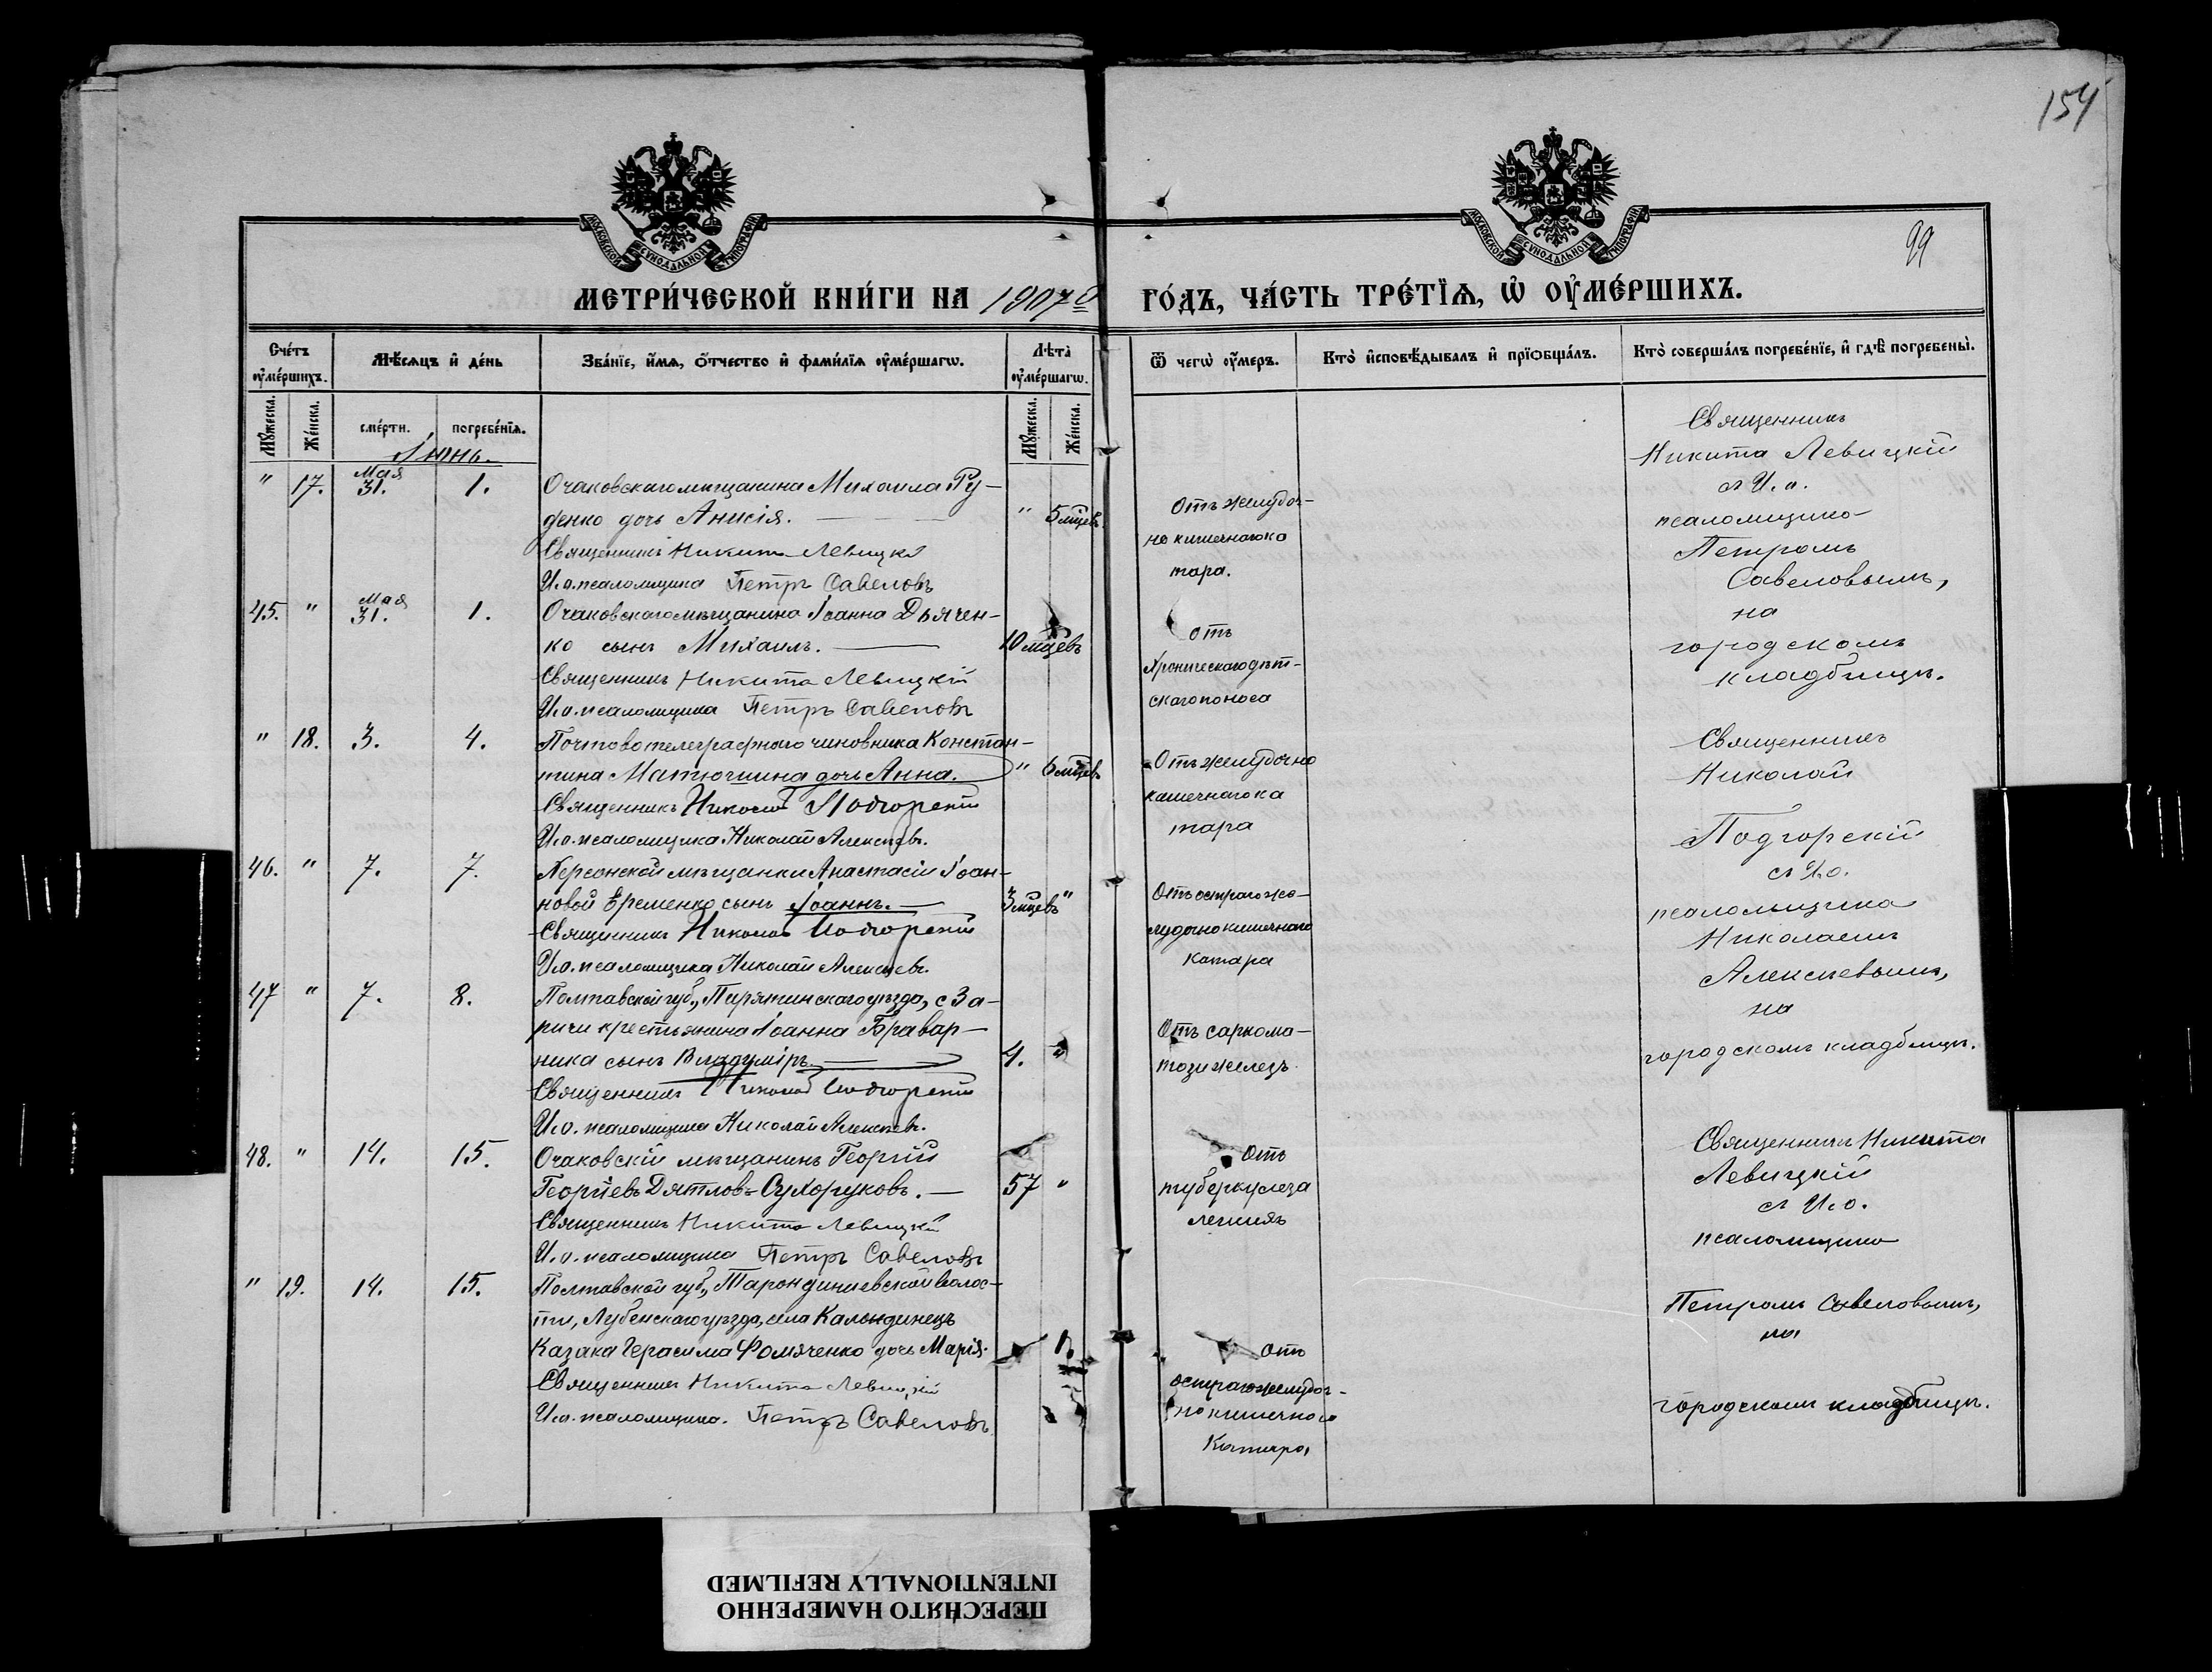 154
99
МОСКОВСКОЙ СѴНОДАЛЬНОЙ ТИПОГРАФІИ
МОСКОВСКОЙ СѴНОДАЛЬНОЙ ТИПОГРАФІИ
МЕТРИ́ЧЕСКОЙ КНИ́ГИ НА 1907й ГО́ДЪ, ЧА́СТЬ ТРЕ́ТЇѦ, Ѡ҆ ОУ҆МЕ́РШИХЪ.
Сче́тъ оу҆ме́ршихъ.
Мѣ́сяцъ и҆ де́нь
Зва́нїе, и҆́мѧ, ѻ҆́тчество и҆ фами́лїѧ оу҆ме́ршагѡ.
Лѣта̀ оу҆ме́ршагѡ.
Ѿ чегѡ̀ оу҆́меръ.
Кто̀ и҆сповѣ́дывалъ и҆ прїѡбща́лъ.
Кто̀ соверша́лъ погребе́нїе, и҆ гдѣ̀ погребены̀.
Мꙋ́жеска. Же́нска. сме́рти. погребе́нїѧ. Мꙋ́жеска. Же́нска.
Іюнь.
" 17. Мая 31. 1. Очаковскаго мѣщанина Михаила Ру-
денко дочь Анисія. " 5 мцевъ.
Священникъ Никита Левицкій
И.о. псаломщика Петръ Савеловъ
Отъ желудоч-
но кишечнаго ка
тара.
Священникъ
Никита Левицкій
съ И.о.
псаломщика
Петромъ
Савеловымъ,
на
городскомъ
кладбищѣ.
45. " Мая 31. 1. Очаковскаго мѣщанина Іоанна Дьячен-
ко сынъ Михаилъ. 10 мцевъ
Священникъ Никита Левицкій
И.о. псаломщика Петръ Савеловъ
отъ
хроническаго дѣт-
скаго поноса
" 18. 3. 4. Почтово телеграфнаго чиновника Констан-
тина Матюгшина дочь Анна. " 6 мцевъ
Священникъ Николай Подгорскій
И.о. псаломщика Николай Алексѣевъ.
Отъ желудочно
кишечнаго ка
тара
Священникъ
Николай
Подгорскій
съ И.о.
псаломщика
Николаемъ
Алексѣевымъ,
на
городскомъ кладбищѣ.
46. " 7. 7. Херсонской мѣщанки Анастасіи Іоан-
новой Еременко сынъ Іоаннъ. 3 мцевъ "
Священникъ Николай Подгорскій
И.о. псаломщика Николай Алексѣевъ.
Отъ остраго же-
лудочно кишечнаго
катара
47 " 7. 8. Полтавской губ., Пирятинскаго уѣзда, с За-
ричи крестьянина Іоанна Бравар-
ника сынъ Владиміръ 4. "
Священникъ Николай Подгорскій
И.о. псаломщика Николай Алексѣевъ.
Отъ саркома-
този железъ
48. " 14. 15. Очаковскій мѣщанинъ Георгій
Георгіевъ Дятловъ-Сухоруковъ. 57 "
Священникъ Никита Левицкій
И.о. псаломщика Петръ Савеловъ
отъ
туберкулеза
легкихъ
Священникъ Никита
Левицкій
съ И.о.
псаломщика
Петромъ Савеловымъ,
на
городскомъ кладбищѣ.
" 19. 14. 15. Полтавской губ., Тарондинцевской волос-
ти, Лубенскаго уѣзда, села Калындинецъ
Казака Герасима Фомяченко дочь Марія. 1.
Священникъ Никита Левицкій
И.о. псаломщика. Петръ Савеловъ
отъ
остраго желудоч-
но кишечнаго
катара
ПЕРЕСНЯТО НАМЕРЕННО
INTENTIONALLY REFILMED